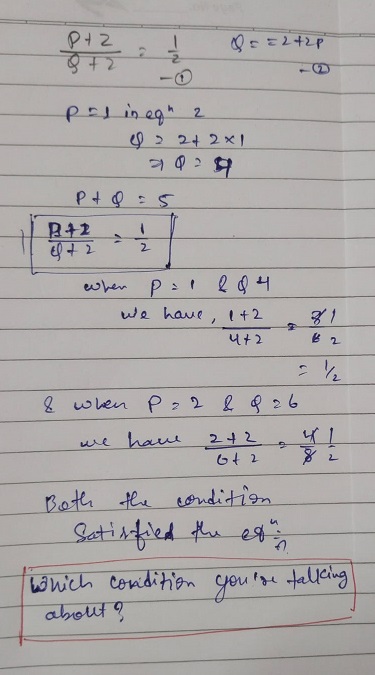 P+2 / Q+2 = 1/2 Q = = 2+2P
– ① – ②
P = 1 in eqⁿ 2
Q = 2 + 2×1
⇒ Q = 4
P + Q = 5
P+2 / Q+2 = 1/2
when P = 1 & Q 4
we have, 1+2 / 4+2 = 3 1 / 6 2
= 1/2
& when P = 2 & Q = 6
we have 2+2 / 6+2 = 4 1 / 8 2
Both the condition
Satisfied the eqⁿ
Which condition you're talking
about?